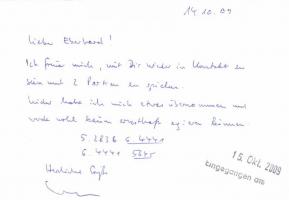 14.10.09
Lieber Eberhard!
Ich freue mich, mit Dir wieder in Kontakt zu
sein und 2 Partien zu spielen.
Leider habe ich mich etwas übernommen und
werde wohl kaum ernsthaft können.
5. 2836 6.4441
6. 4441 5645
Herzliche Grüße
15. Okt. 2009
Eingegangen am